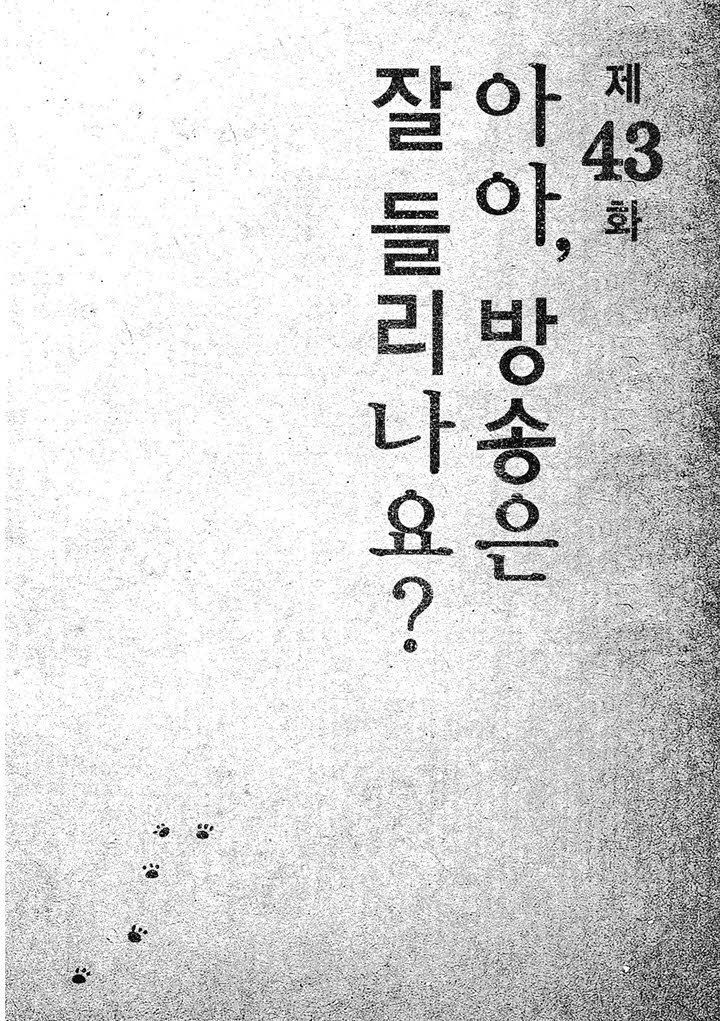 제43화
아아, 방송은
잘 들리나요?